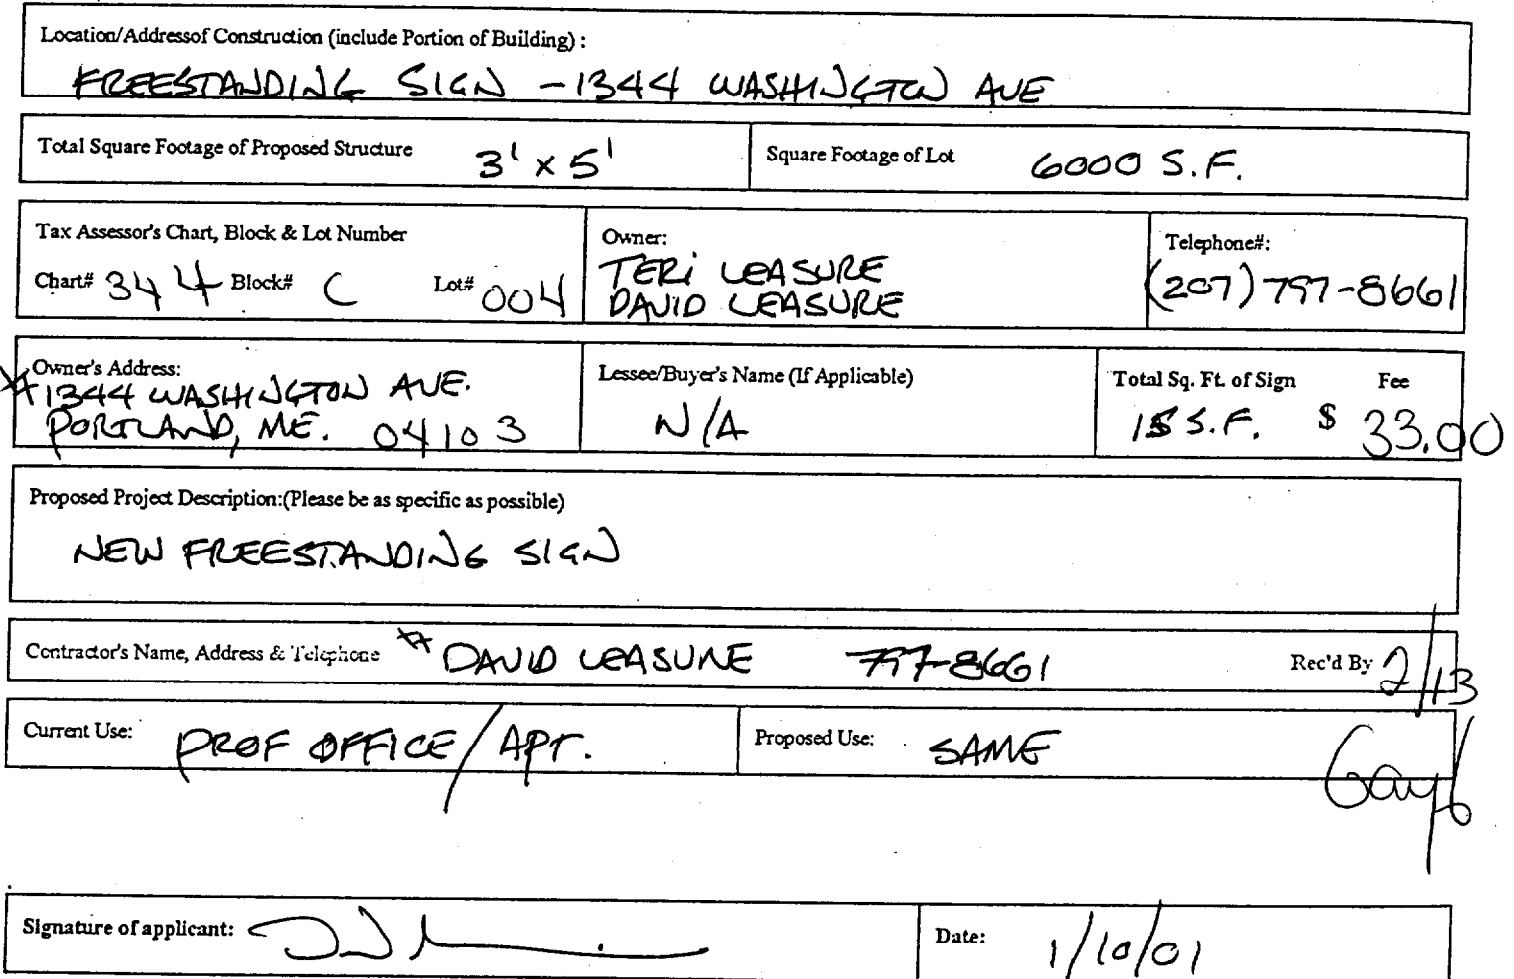 Location/Addressof Construction (include Portion of Building) :
FREESTANDING SIGN - 1344 WASHINGTON AVE
Total Square Footage of Proposed Structure 3' x 5' Square Footage of Lot 6000 S.F.
Tax Assessor's Chart, Block & Lot Number
Chart# 344 Block# C Lot# 004
Owner:
TERI LEASURE
DAVID LEASURE
Telephone#:
(207) 797-8661
Owner's Address:
1344 WASHINGTON AVE.
PORTLAND, ME. 04103
Lessee/Buyer's Name (If Applicable)
N/A
Total Sq. Ft. of Sign Fee
15 S.F. $ 33.00
Proposed Project Description:(Please be as specific as possible)
NEW FREESTANDING SIGN
Contractor's Name, Address & Telephone DAVID LEASURE 797-8661 Rec'd By 2/13
Current Use: PROF OFFICE/APT. Proposed Use: SAME
Signature of applicant:
Date: 1/10/01